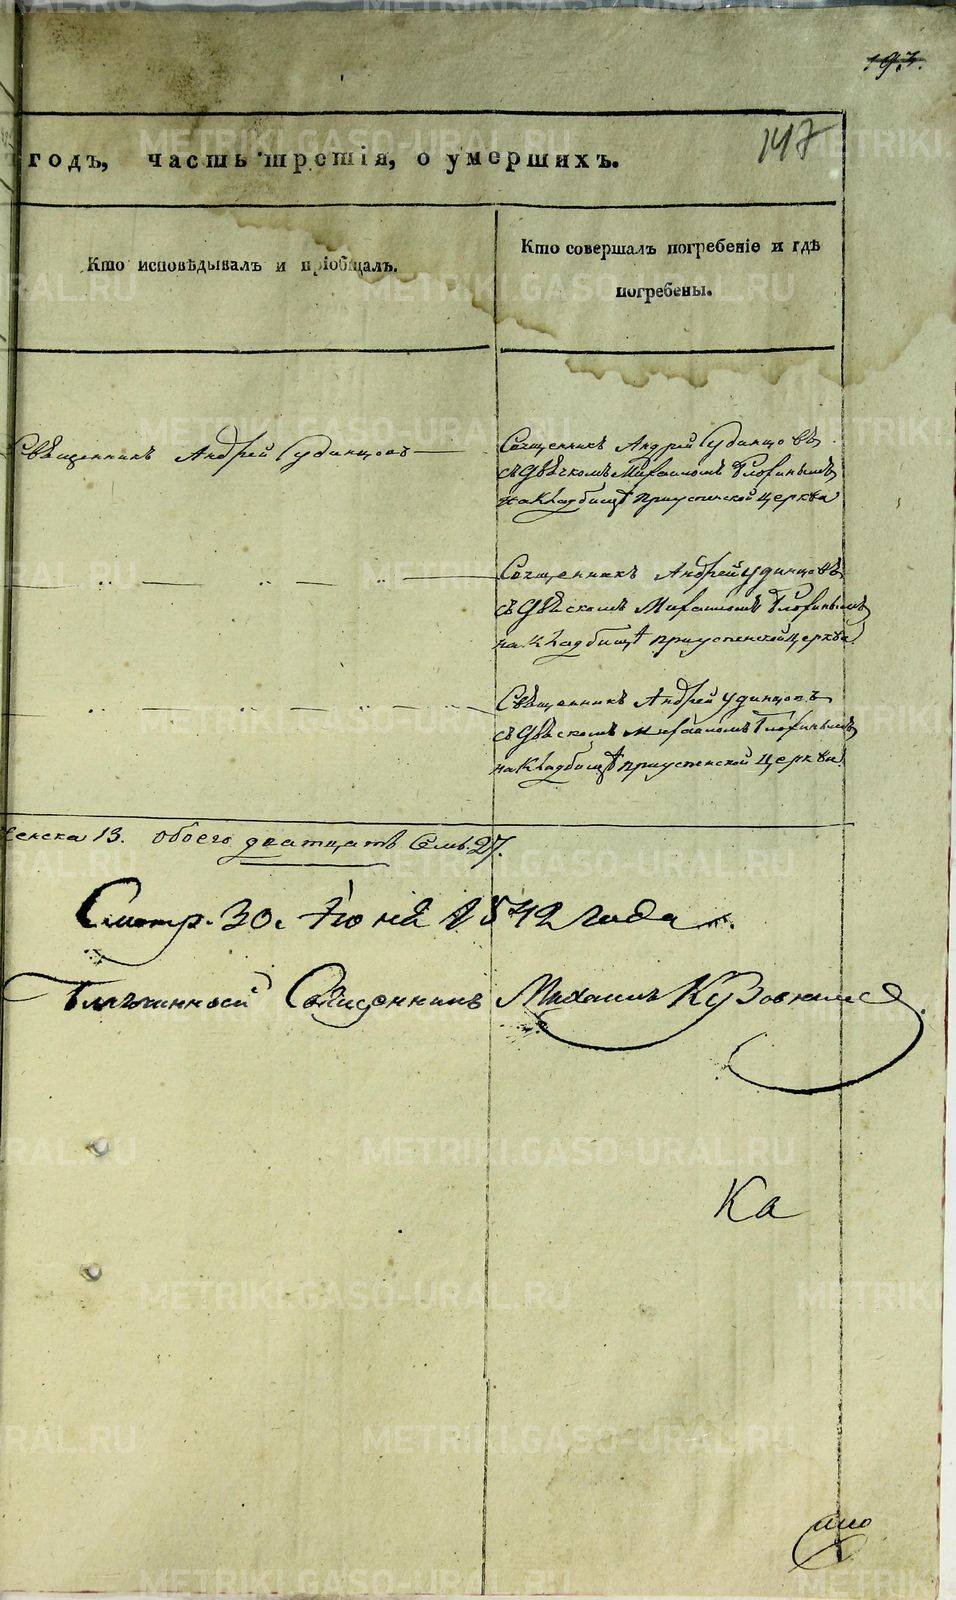 197.
147
годъ, часть третія, о умершихъ.
Кто исповѣдывалъ и пріобщалъ.
Кто совершалъ погребеніе и гдѣ
погребены.
Священникъ Андрей Удинцовъ
Священникъ Андрей Удинцовъ
съ дьячкомъ Михаиломъ
на кладбищѣ приуспенской церкви
Священникъ Андрей Удинцовъ
съ дьячкомъ Михаиломъ
на кладбищѣ приуспенской церкви
Священникъ Андрей Удинцовъ
съ дьячкомъ Михаиломъ
на кладбищѣ приуспенской церкви
женска 13. обоего дватцать семь 27.
Смотр. 30. Іюня 1842 года
Священникъ Михаилъ
Ка
METRIKI.GASO-URAL.RU